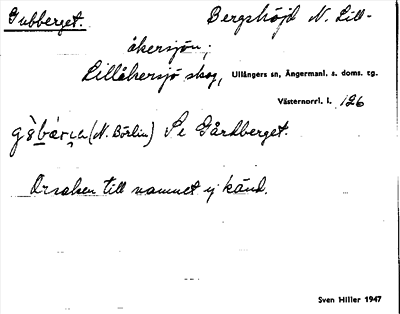 Gubberget. Bergshöjd N. Lill-
åkersjön;
Lillåkersjö skog, Ullångers sn, Ångermanl. s. doms. tg.
Västernorrl. l. 126
(N. Börlin) Se Gårdberget.
Orsaken till namnet ej känd.
Sven Hiller 1947